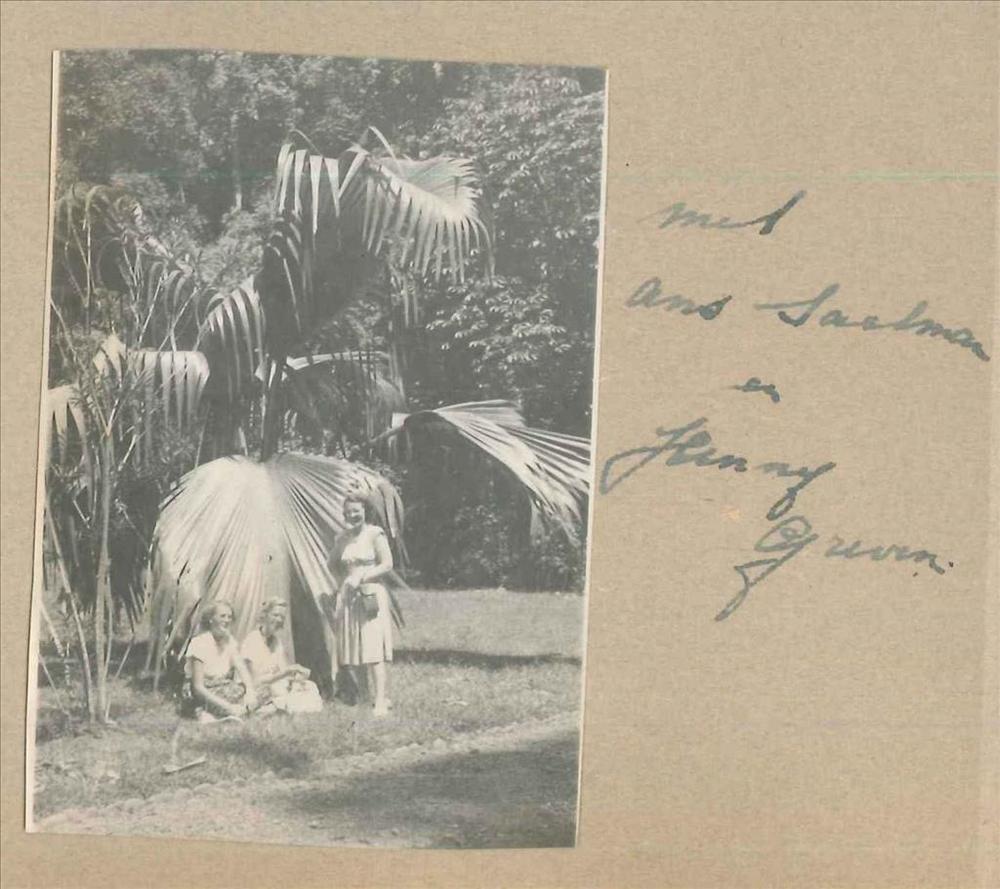 met
Ans Saelman
en
Henny
Greven.